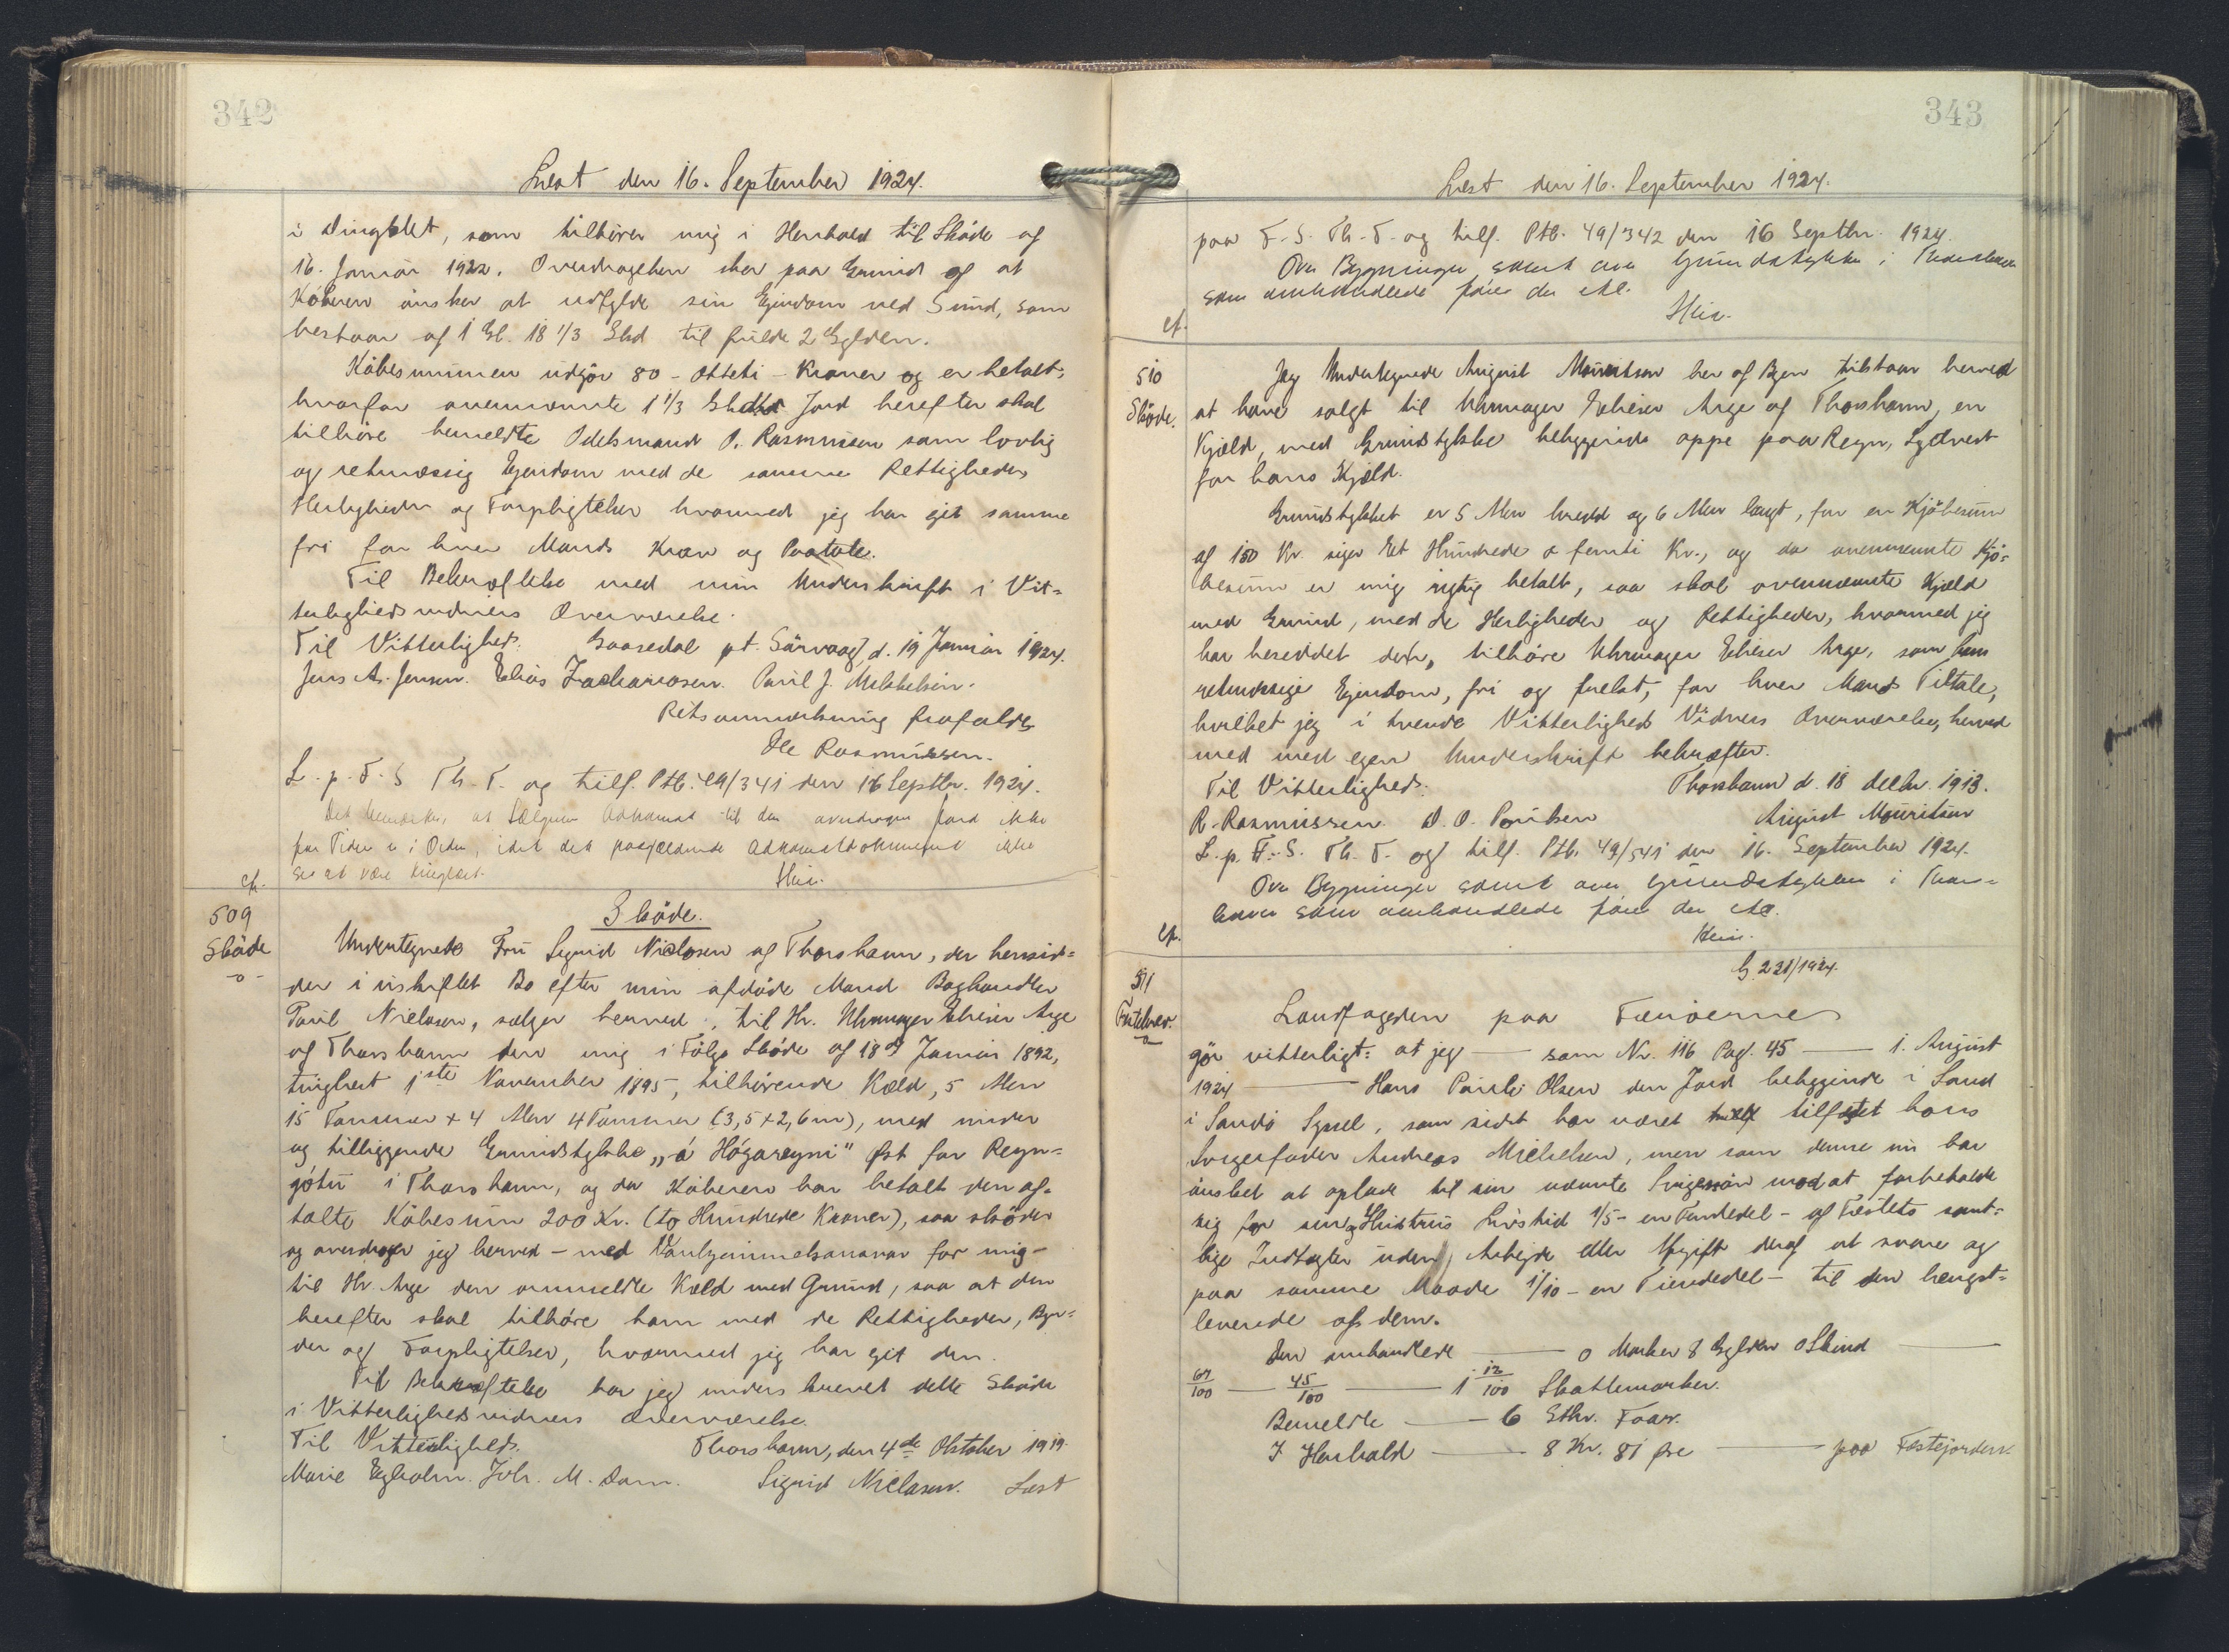 342
Læst den 16. September 1924.
i Dinglet, som tilhører mig i Henhold til Skøde af
16. Januar 1922. Overdragelsen sker paa Grund af at
Køberen ønsker at udfylde sin Ejendom ved Sund, som
bestaar af 1 Gl. 18 1/3 Skd til fulde 2 Gylden.
Købesummen udgør 80 - Otteti - Kroner og er betalt,
hvorfor ovennævnte 1 1/3 Skind Jord herefter skal
tilhøre bemeldte Odelsmand O. Rasmussen som lovlig
og retmæssig Ejendom med de samme Rettigheder,
Herligheder og Forpligtelser hvormed jeg har ejet samme
fri for hver Mands Krav og Paatale.
Til Bekræftelse med min Underskrift i Vit=
terlighedsvidners Overværelse.
Til Vitterlighed. Gaasedal pt. Sörvaag, d. 19 Januar 1924.
Jens A. Jensen. Elias Zachariasen. Poul J. Mikkelsen.
Retsanmærkning frafaldes
Ole Rasmussen.
L. p. F. S Th. T. og tilf. Ptb. 49/341 den 16 Septbr. 1924.
Det bemærkes, at Sælgerens Adkomst til den overdragne Jord ikke
for Tiden er i Orden, idet det paagældende Adkomstdokument ikke
ses at være tinglæst.
cf.
509
Skøde
-o-
Skøde.
Undertegnede Fru Sigrid Niclasen af Thorshavn, der hensid=
der i uskiftet Bo efter min afdøde Mand Boghandler
Poul Niclasen, sælger herved til Hr. Uhrmager Elieser Arge
af Thorshavn den mig i Følge Skøde af 18de Januar 1892,
tinglæst 1ste November 1895, tilhørende Kæld, 5 Alen
15 Tommer x 4 Alen 4 Tommer (3,5 x 2,6 m), med under
og tilliggende Grundstykke "á Hógareyni" Øst for Reyn=
gøtu i Thorshavn, og da Køberen har betalt den af=
talte Købesum 200 Kr. (to Hundrede Kroner), saa skøder
og overdrager jeg herved - med Vanhjemmelsansvar for mig -
til Hr. Arge den ommeldte Kæld med Grund, saa at den
herefter skal tilhøre ham med de Rettigheder, Byr=
der og Forpligtelser, hvormed jeg har ejet den.
Til Bekræftelse har jeg underskrevet dette Skøde
i Vitterlighedsvidners Overværelse.
Til Vitterlighed. Thorshavn, den 4de Oktober 1919.
Marie Egholm. Joh. M. Dam. Sigrid Niclasen. Læst
343
Læst den 16. September 1924.
paa F. S. Th. T. og tilf. Ptb. 49/342 den 16 Septbr. 1924.
Ovn Bygninger samt ovn Grundstykke i
som omhandlede føres der ikke.
cf.
510
Skøde.
Jeg Undertegnede August Mouritsen her af Byen tilstaar herved
at have solgt til Uhrmager Elieser Arge af Thorshavn, en
Kjæld, med Grundstykke beliggende oppe paa Reyn, Sydvest
for hans Kjæld.
Grundstykket er 5 Alen bredt og 6 Alen langt, for en Kjøbesum
af 150 Kr. siger Et Hundrede o femti Kr., og da ovennævnte Kjø=
besum er mig rigtig betalt, saa skal ovennævnte Kjæld
med Grund, med de Herligheder og Rettigheder, hvormed jeg
har besiddet den, tilhøre Uhrmager Elieser Arge, som hans
retmæssige Ejendom, fri og frelst, for hver Mands Tiltale,
hvilket jeg i tvende Vitterligheds Vidners Overværelse, herved
med med egen Underskrift bekræfter.
Til Vitterlighed: Thorshavn d. 18 decbr. 1913.
R. Rasmussen. D. O. Poulsen August Mouritsen
L. p. F. S. Th. T. og tilf. Ptb. 49/341 den 16. September 1924.
Ovn Bygninger samt ovn Grundstykke i Thors=
havn som omhandlede føres der ikke.
cf.
G. 231/1924.
511
Fæstebrev.
Landfogeden paa Færøerne
gör vitterligt: at jeg — som Nr. 116 Pag. 45 — 1. August
1924 — Hans Pauli Olsen den Jord beliggende i Sand
i Sandø Syssel, som sidst har været tilfæstet hans
Svigerfader Andreas Michelsen, men som denne nu har
ønsket at oplade til sin nævnte Svigersøn mod at forbeholde
sig for sin og Hustrus Livstid 1/5 - en Femtedel - af Fæstets samt=
lige Indtægter uden Arbejde eller Afgift deraf at svare og
paa samme Maade 1/10 - en Tiendedel - til den længst=
levende af dem.
Den omhandlede — 0 Marker 8 Gylden 0 Skind —
67/100 — 45/100 — 1 12/100 Skattemarker.
Bemeldte — 6 Stkr. Faar.
I Henhold — 8 Kr. 81 Øre — paa Fæstejorden.